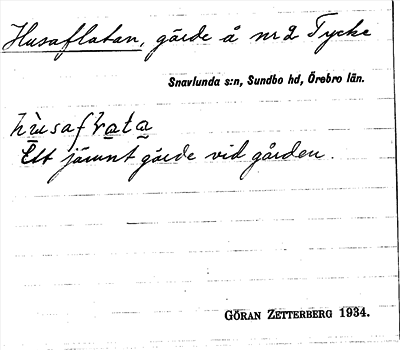 Husaflatan, gärde å nr 2 Tycke
Snavlunda s:n, Sundbo hd, Örebro län.
Ett jämnt gärde vid gården.
GÖRAN ZETTERBERG 1934.